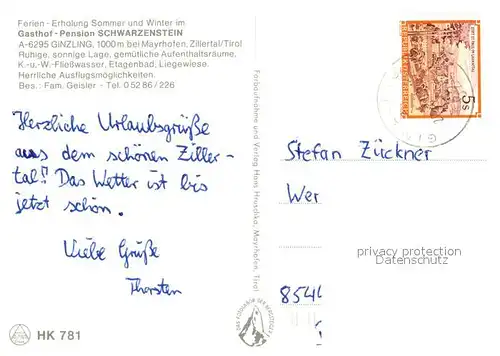 Ferien - Erholung Sommer und Winter im
Gasthof - Pension SCHWARZENSTEIN
A-6295 GINZLING, 1000 m bei Mayrhofen, Zillertal/Tirol
Ruhige, sonnige Lage, gemütliche Aufenthaltsräume.
K.- u. W.-Fließwasser, Etagenbad, Liegewiese.
Herrliche Ausflugsmöglichkeiten.
Bes.: Fam. Geisler - Tel. 0 52 86 / 226
Herzliche Urlaubsgrüße
aus dem schönen Ziller-
tal! Das Wetter ist bis
jetzt schön.
Liebe Grüße
Thorsten
HK 781
Farbaufnahme und Verlag Hans Hruschka, Mayrhofen, Tirol
5s
Stefan Zückner
Wer
privacy protection
www.akpool.de
854